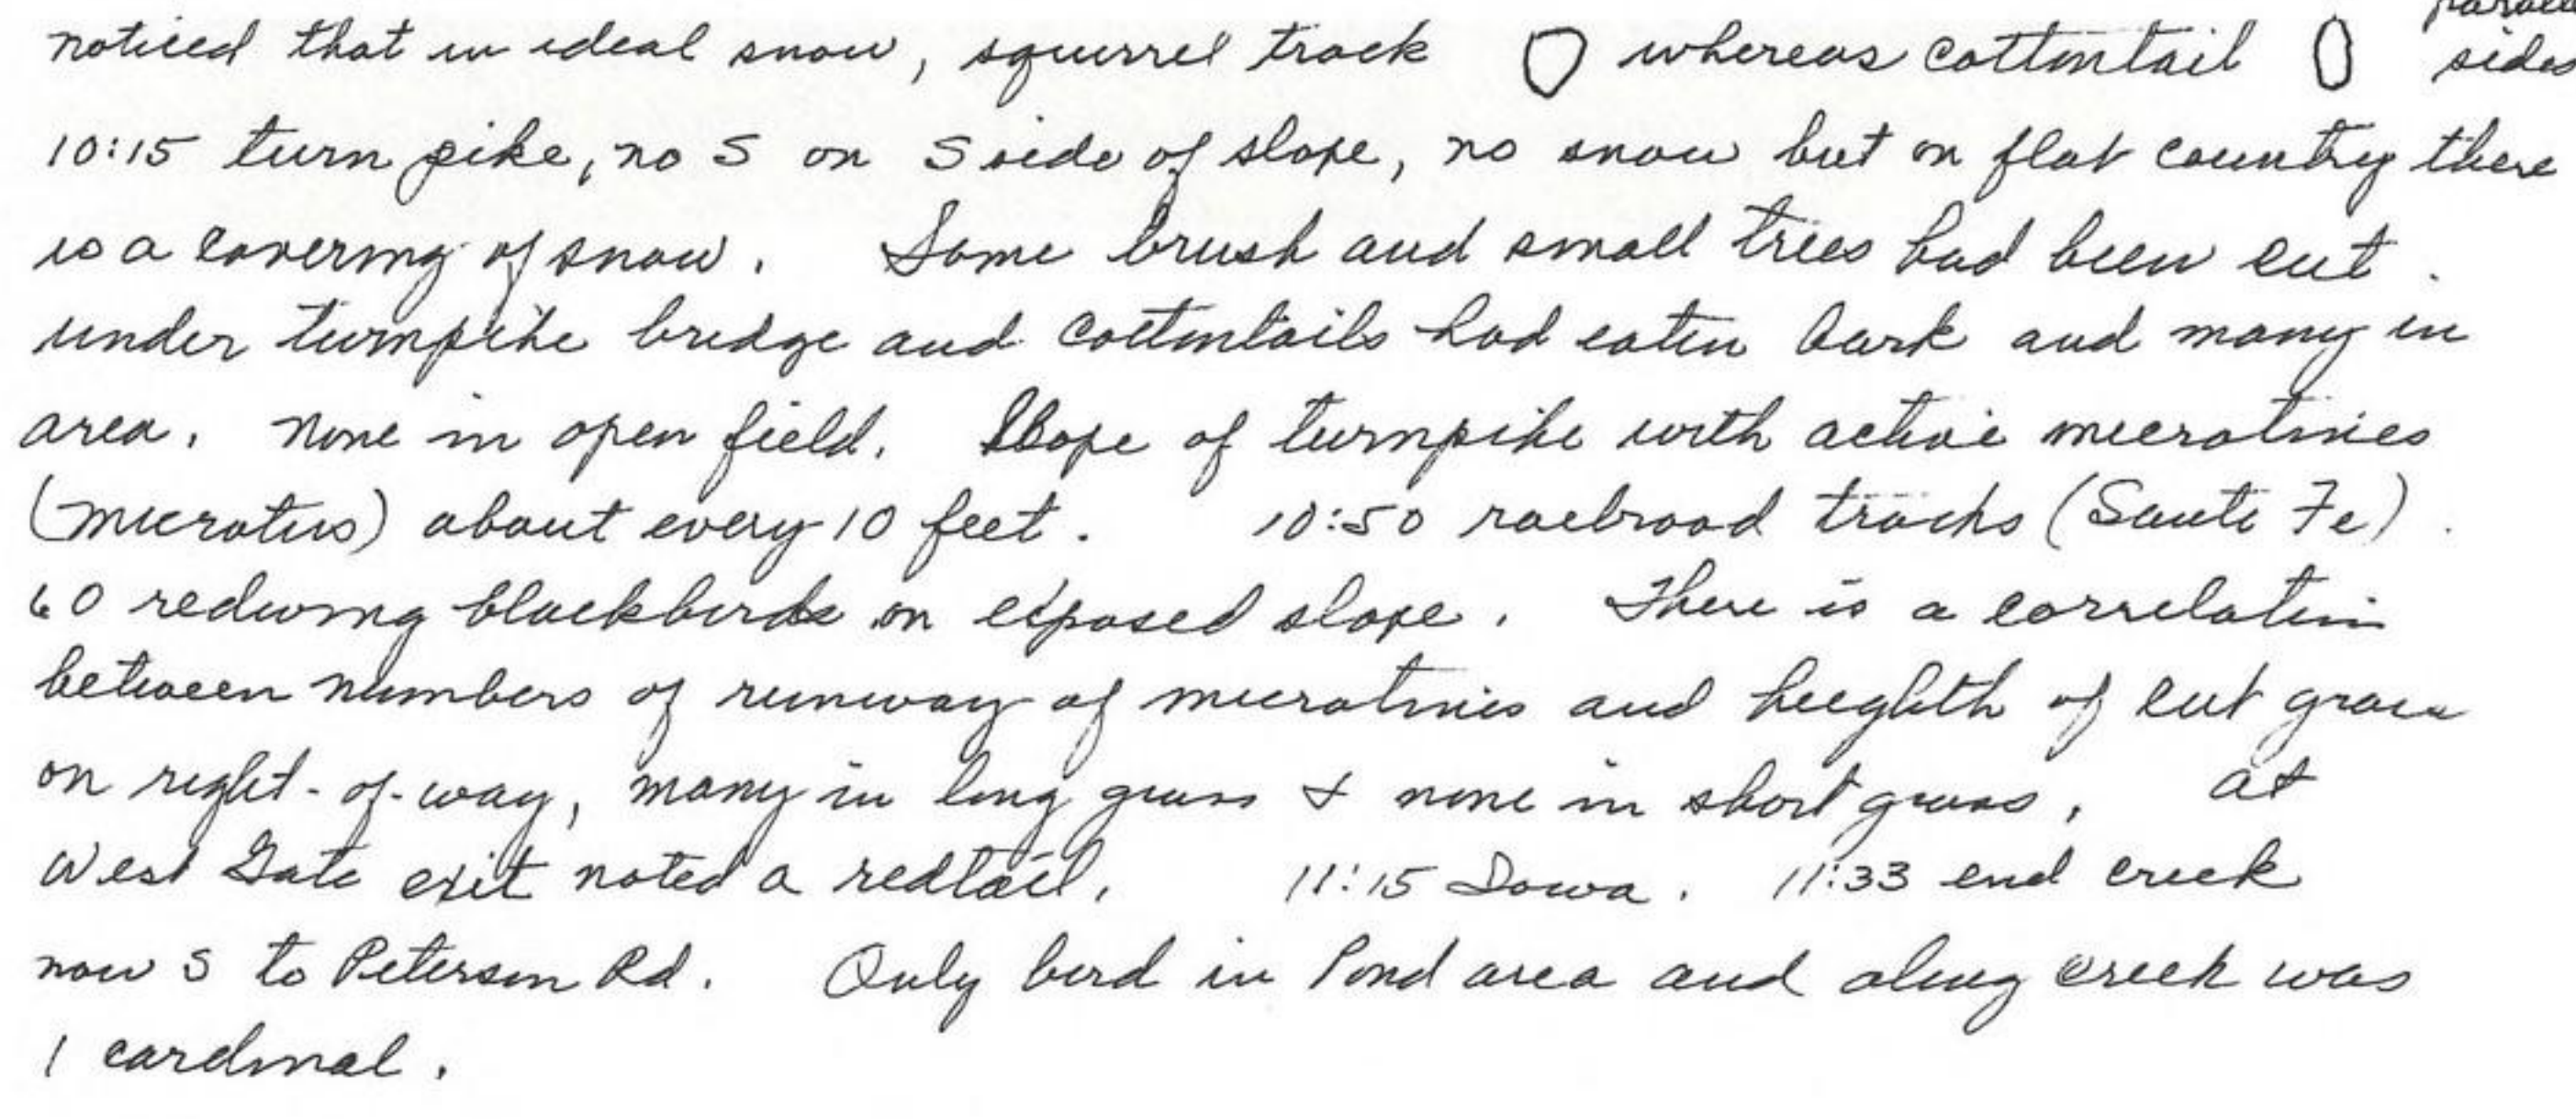 noticed that in ideal snow, squirrel track whereas cottontail sides
10:15 turnpike, no S on S side of slope, no snow but on flat country there
is a covering of snow. Some brush and small trees had been cut
under turnpike bridge and cottontails had eaten bark and many in
area. None in open field. Slope of turnpike with active microtines
(microtus) about every 10 feet. 10:50 railroad tracks (Sante Fe).
60 redwing blackbirds on exposed slope. There is a correlation
between numbers of runway of microtines and heighth of cut grass
on right-of-way, many in long grass & none in short grass. At
West Gate exit noted a redtail. 11:15 Iowa. 11:33 end creek
now S to Peterson Rd. Only bird in Pond area and along creek was
1 cardinal.